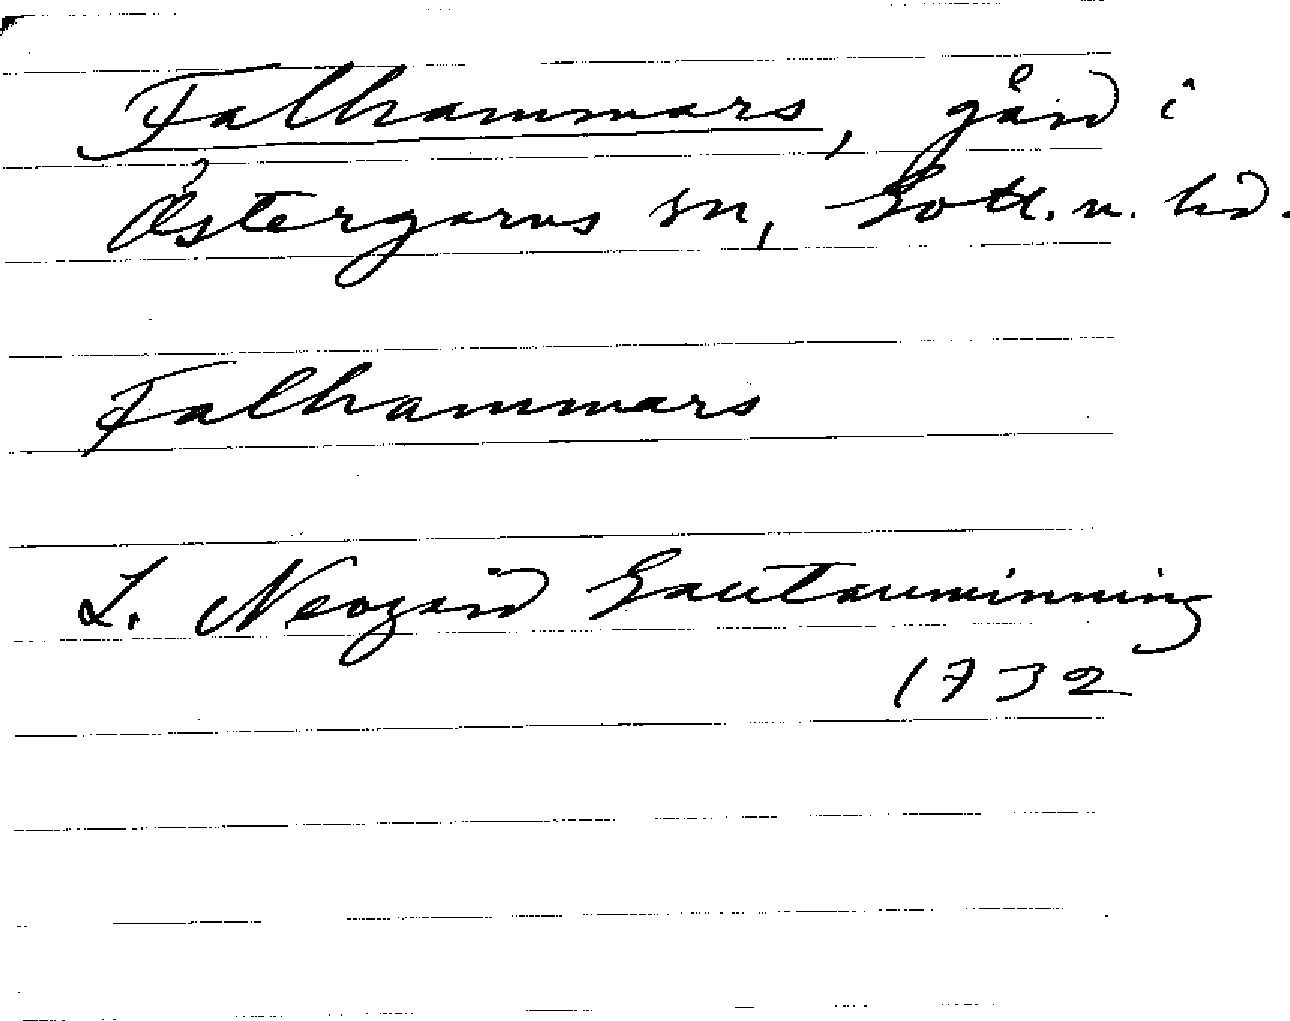 Falhammars, gård i
Östergarns sn, Gotl. n. hd.
Falhammars
L. Neogard Gautauminning
1732